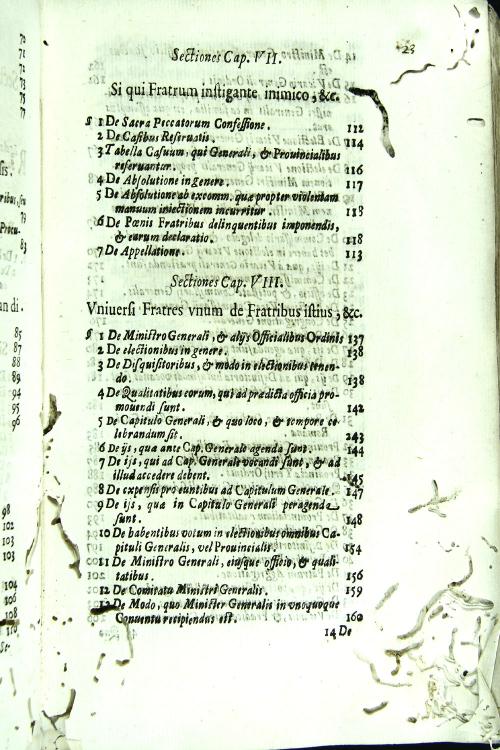 23
Sectiones Cap. VII.
Si qui Fratrum instigante inimico, &c.
§ 1 De Sacra Peccatorum Confessione. 112
2 De Casibus Reservatis. 114
3 Tabella Casuum, qui Generali, & Provincialibus
reservantur. 116
4 De Absolutione in genere. 117
5 De Absolutione ab excomm. quæ propter violentam
manuum iniectionem incurritur 118
6 De Pœnis Fratribus delinquentibus imponendis,
& earum declaratio. 118
7 De Appellatione. 113
Sectiones Cap. VIII.
Vniuersi Fratres vnum de Fratribus istius, &c.
§ 1 De Ministro Generali, & alijs Officialibus Ordinis 137
2 De electionibus in genere. 138
3 De Disquisitoribus, & modo in electionibus tenen-
do. 138
4 De Qualitatibus eorum, qui ad prædicta officia pro-
mouendi sunt. 142
5 De Capitulo Generali, & quo loco, & tempore ce
lebrandum sit. 243
6 De ijs, quæ ante Cap. Generale agenda sunt. 144
7 De ijs, qui ad Cap. Generale vocandi sunt, & ad
illud accedere debent. 145
8 De expensis pro euntibus ad Capitulum Generale. 147
9 De ijs, quæ in Capitulo Generali peragenda
sunt. 148
10 De habentibus votum in electionibus omnibus Ca-
pituli Generalis, vel Provincialis. 154
11 De Ministro Generali, eiusque officio, & quali
tatibus. 156
12 De Comitatu Ministri Generalis. 159
13 De Modo, quo Minister Generalis in vnoquoque
Conuentu recipiendus est. 160
14 De